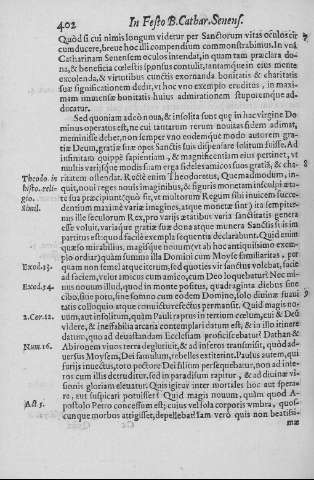 402 In Festo B. Cathar. Senens.
Quòd si cui nimis longum videtur per Sanctorum vitas oculos cir- 7
cumducere, breue hoc illi compendium commonstrabimus. In vnã
Catharinam Senensem oculos intendat, in quam tam præclara do-
na, & beneficia cœlestis sponsi consulit, tantamque in eius mente
excolenda, & virtutibus cunctis exornanda bonitatis & charitatis
suæ significationem dedit, vt hoc vno exemplo eruditus, in maxi-
mam immensæ bonitatis huius admirationem stuporemque ad-
ducatur.
Sed quoniam adeò noua, & insolita sunt quæ in hac virgine Do-
minus operatus est, ne cui tantarum rerum nouitas fidem adimat,
meminisse debet, non semper vno eodemque modo autorem gra-
tiæ Deum, gratiæ suæ opes Sanctis suis dispensare solitum fuisse. Ad
infinitam quippè sapientiam, & magnificentiam eius pertinet, vt
multis varijsque modis suam erga fideles amicos suos gratiã, & cha- 8
Theodo. in ritatem ostendat. Rectè enim Theodoretus, Quemadmodum, in-
histo. reli- quit, noui reges nouis imaginibus, & figuris monetam insculpi ætu-
gio. tura præcipiunt (quo fit, vt multorum Regum sibi inuicem succe-
Simil. dentium maximè variæ imagines, atque monetæ sint) ita sempiter-
nus ille seculorum Rex, pro varijs ætatibus varia sanctitatis genera
esse voluit, variaque gratiæ suæ dona atque munera Sanctis suis im
partitus est: quod facilè exempla sequentia declarabunt. Quid enim
quæso mirabilius, magisque nouum (vt ab hoc antiquissimo exem-
plo ordiar) quàm summa illa Domini cum Moyse familiaritas, per
Exod. 33. quam non semel atque iterum, sed quoties vir sanctus volebat, facie
ad faciem, velut amicus cum amico, cum Deo loquebatur? Nec mi-
Exod. 34. nus nouum illud, quod in monte positus, quadraginta diebus sine
cibo, sine potu, sine somno cum eodem Domino, solo diuinæ suaui 9
tatis colloquio atque conuictu refectus permansit. Quid magis no-
2. Cor. 12. uum, aut insolitum, quàm Pauli raptus in tertium cœlum, cui & Deũ
videre, & ineffabilia arcana contemplari datum est, & in illo itinere
datum, quo ad deuastandam Ecclesiam proficiscebatur? Dathan &
Num. 16. Abironem viuos terra deglutiuit, & ad inferos transmisit, quòd ad-
uersus Moysem, Dei famulum, rebelles extiterint. Paulus autem, qui
furijs inuectus, toto pectore Dei filium persequebatur, non ad infe-
ros cum illis detruditur, sed in paradisum rapitur, & ad diuinæ vi-
sionis gloriam eleuatur. Quis igitur inter mortales hoc aut spera-
re, aut suspicari potuisset? Quid magis nouum, quàm quod A-
Act. 5. postolo Petro concessum est; cuius vel sola corporis vmbra, quos-
cunque morbus attigisset, depellebat? Iam verò quis non beatissi-
mæ